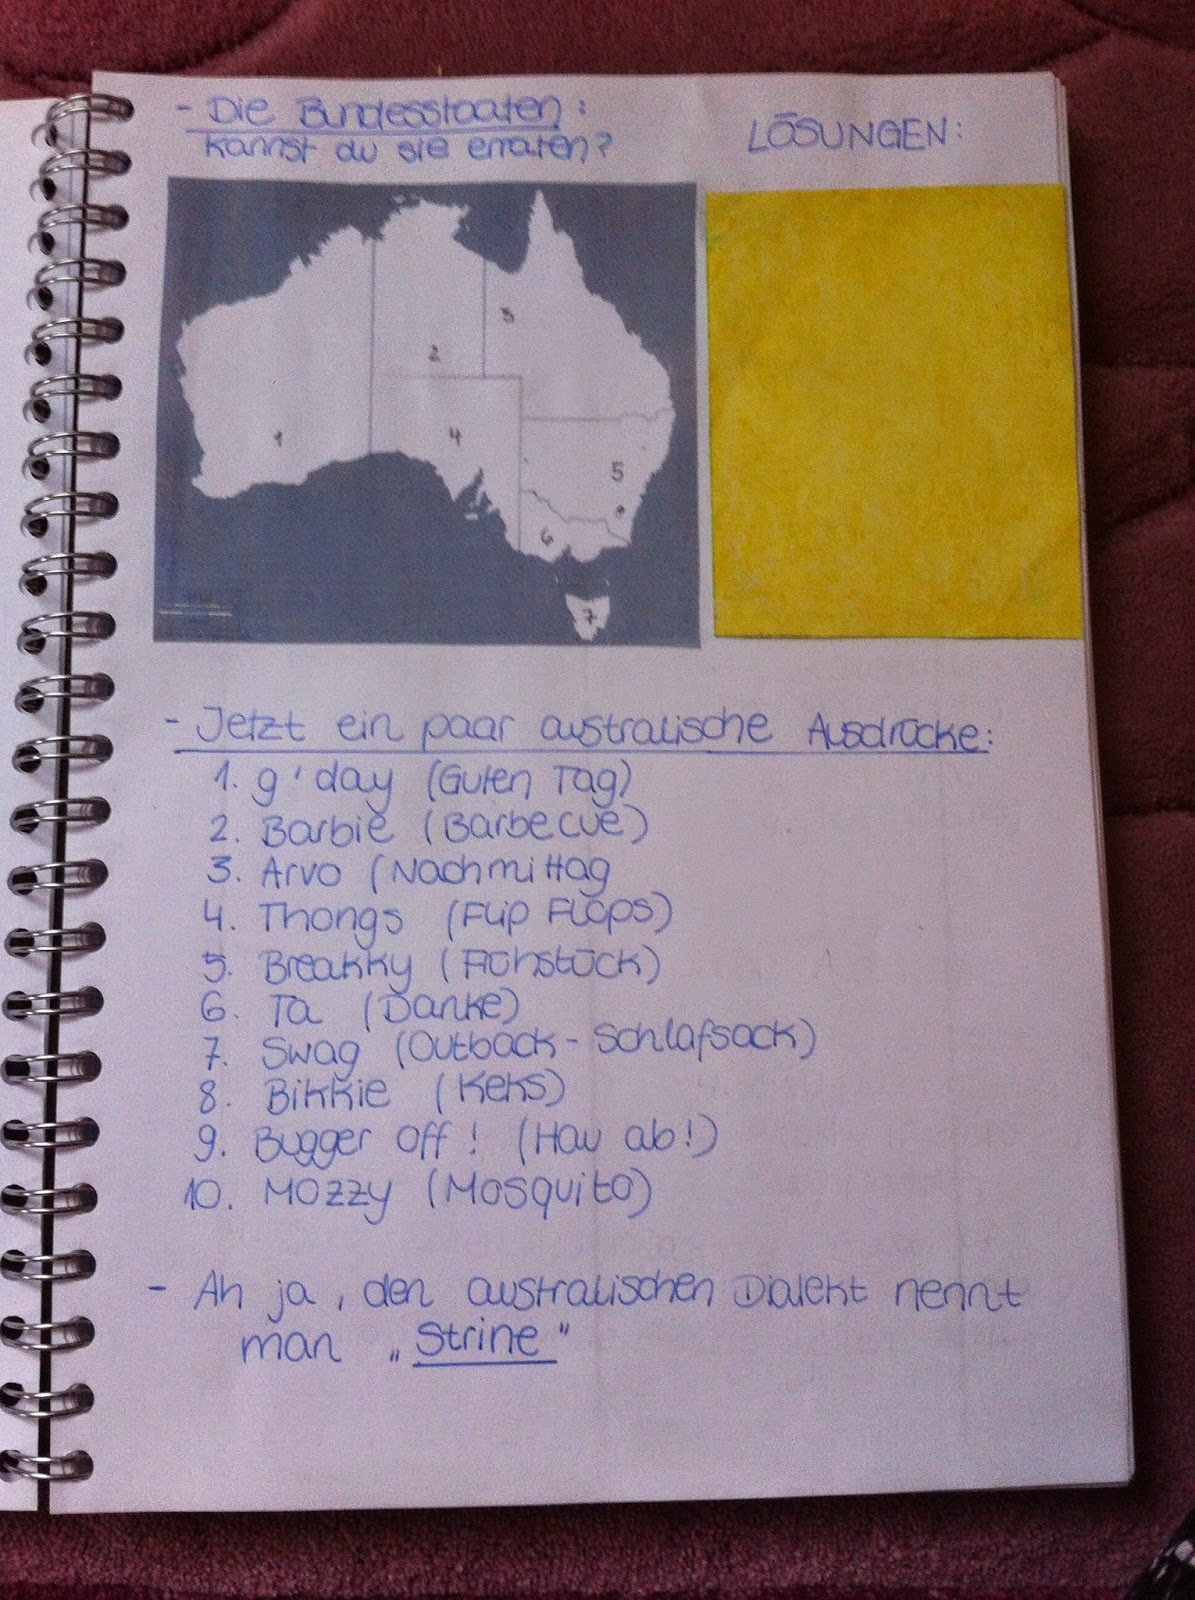 - Die Bundesstaaten:
kannst du sie erraten?
LÖSUNGEN:
3
2
1
4
5
6
7
- Jetzt ein paar australische Ausdrücke:
1. g'day (Guten Tag)
2. Barbie (Barbecue)
3. Arvo (Nachmittag
4. Thongs (Flip Flops)
5. Breakky (Frühstück)
6. Ta (Danke)
7. Swag (Outback-Schlafsack)
8. Bikkie (Keks)
9. Bugger off! (Hau ab!)
10. Mozzy (Mosquito)
- Ah ja, den australischen Dialekt nennt
man „Strine"